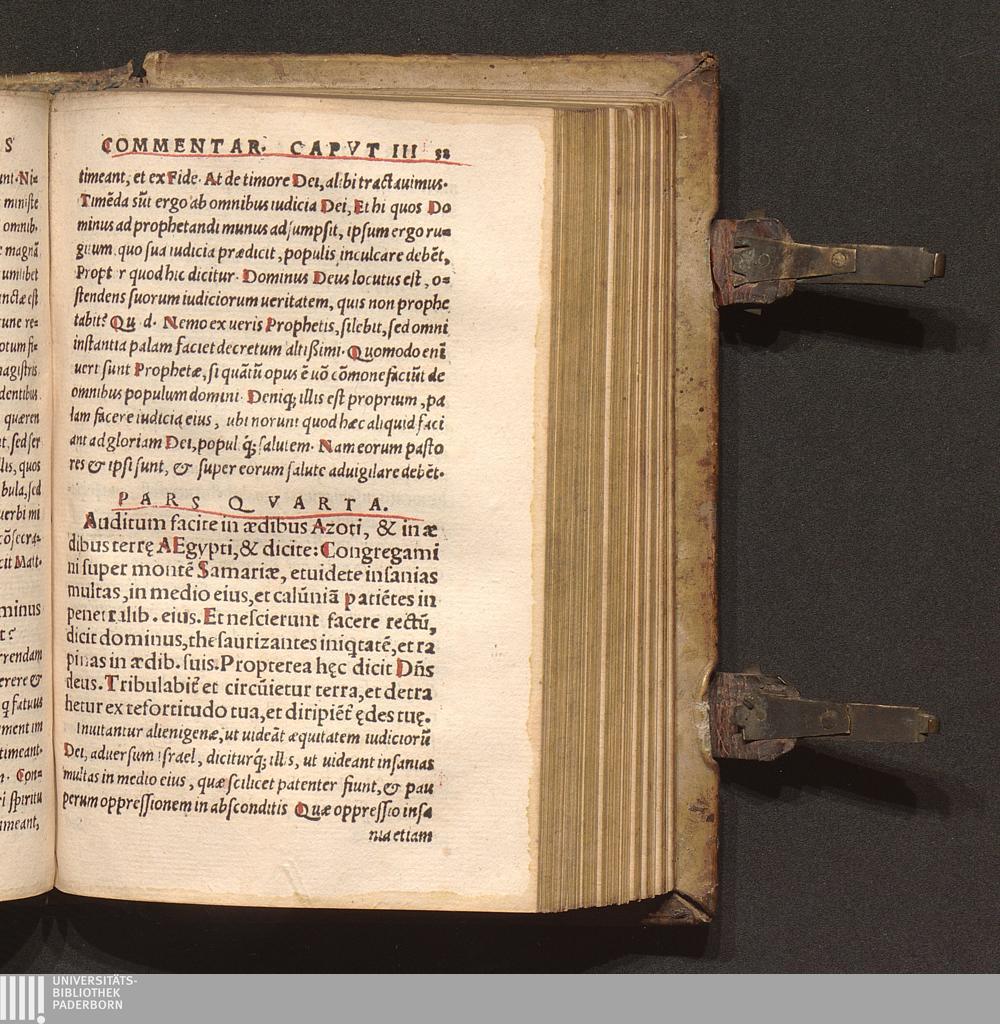 S
unt. Ni=
ministe
omnib.
e magnā
umlibet
nctæ est
tunc re=
otum fi=
nagistris
dentibus
quæren
t, sed ser
lis, quos
bula, sed
verbi mi
cōsecra=
cit Matt.
minus
t?
rrendam
erere &
q fatuus
ment im
timeant.
n. Con=
ri spiritu
imeant,
COMMENTAR. CAPVT III 32
timeant, et ex Fide. At de timore Dei, alibi tractauimus.
Timēda sūt ergo ab omnibus iudicia Dei, Et hi quos Do
minus ad prophetandi munus adsumpsit, ipsum ergo ru=
gitum quo sua iudicia prædicit, populis inculcare debēt,
Propt r quod hic dicitur. Dominus Deus locutus est, o=
stendens suorum iudiciorum ueritatem, quis non prophe
tabit? Qu d. Nemo ex ueris Prophetis, silebit, sed omni
instantia palam faciet decretum altißimi. Quomodo enī
ueri sunt Prophetæ, si quātū opus ē nō cōmonefaciūt de
omnibus populum domini. Deniq; illis est proprium, pa
lam facere iudicia eius, ubi norunt quod hæc aliquid faci
ant ad gloriam Dei, popul q́; salutem. Nam eorum pasto
res & ipsi sunt, & super eorum salute aduigilare debēt.
PARS QVARTA.
Auditum facite in ædibus Azoti, & in æ
dibus terrę AEgypti, & dicite: Congregami
ni super montē Samariæ, et uidete insanias
multas, in medio eius, et calūniā patiētes in
penetralib. eius. Et nescierunt facere rectū,
dicit dominus, thesaurizantes iniqtatē, et ra
pinas in ædib. suis. Propterea hęc dicit Dn̄s
deus. Tribulabit̄ et circūietur terra, et detra
hetur ex te fortitudo tua, et diripiēt̄ ędes tuę.
Inuitantur alienigenæ, ut uideāt æquitatem iudiciorū
Dei, aduersum Israel, diciturq́; illis, ut uideant insanias
multas in medio eius, quæ scilicet patenter fiunt, & pau
perum oppressionem in absconditis Quæ oppressio insa
nia etiam
UNIVERSITÄTS-
BIBLIOTHEK
PADERBORN